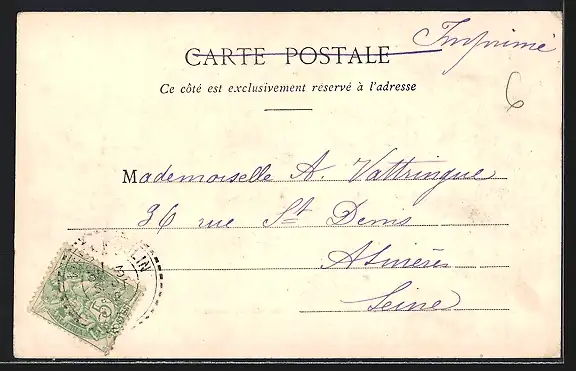 Imprimé
CARTE POSTALE
Ce côté est exclusivement réservé à l'adresse
6
Mademoiselle A. Vattringue
36 rue St Denis
Asnières
Seine
LIN
5